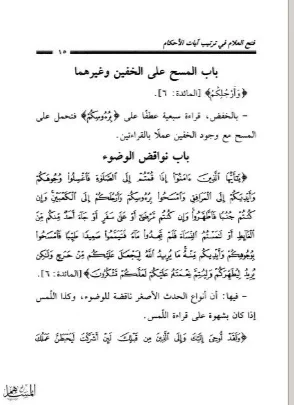 فتح العلام في ترتيب آيات الأحكام
١٥
باب المسح على الخفين وغيرهما
﴿وَأَرْجُلِكُمْ﴾ [المائدة: ٦].
– بالخفض، قراءة سبعية عطفًا على ﴿بِرُءُوسِكُمْ﴾ فتحمل على
المسح مع وجود الخفين عملًا بالقراءتين.
باب نواقض الوضوء
﴿يَٰٓأَيُّهَا ٱلَّذِينَ ءَامَنُوٓا۟ إِذَا قُمْتُمْ إِلَى ٱلصَّلَوٰةِ فَٱغْسِلُوا۟ وُجُوهَكُمْ
وَأَيْدِيَكُمْ إِلَى ٱلْمَرَافِقِ وَٱمْسَحُوا۟ بِرُءُوسِكُمْ وَأَرْجُلَكُمْ إِلَى ٱلْكَعْبَيْنِ وَإِن
كُنتُمْ جُنُبًا فَٱطَّهَّرُوا۟ وَإِن كُنتُم مَّرْضَىٰٓ أَوْ عَلَىٰ سَفَرٍ أَوْ جَآءَ أَحَدٌ مِّنكُم مِّنَ
ٱلْغَآئِطِ أَوْ لَٰمَسْتُمُ ٱلنِّسَآءَ فَلَمْ تَجِدُوا۟ مَآءً فَتَيَمَّمُوا۟ صَعِيدًا طَيِّبًا فَٱمْسَحُوا۟
بِوُجُوهِكُمْ وَأَيْدِيكُم مِّنْهُ مَا يُرِيدُ ٱللَّهُ لِيَجْعَلَ عَلَيْكُم مِّنْ حَرَجٍ وَلَٰكِن
يُرِيدُ لِيُطَهِّرَكُمْ وَلِيُتِمَّ نِعْمَتَهُۥ عَلَيْكُمْ لَعَلَّكُمْ تَشْكُرُونَ﴾ [المائدة: ٦].
– فيها: أن أنواع الحدث الأصغر ناقضة للوضوء، وكذا اللمس
إذا كان بشهوة على قراءة اللمس.
﴿وَلَقَدْ أُوحِىَ إِلَيْكَ وَإِلَى ٱلَّذِينَ مِن قَبْلِكَ لَئِنْ أَشْرَكْتَ لَيَحْبَطَنَّ عَمَلُكَ